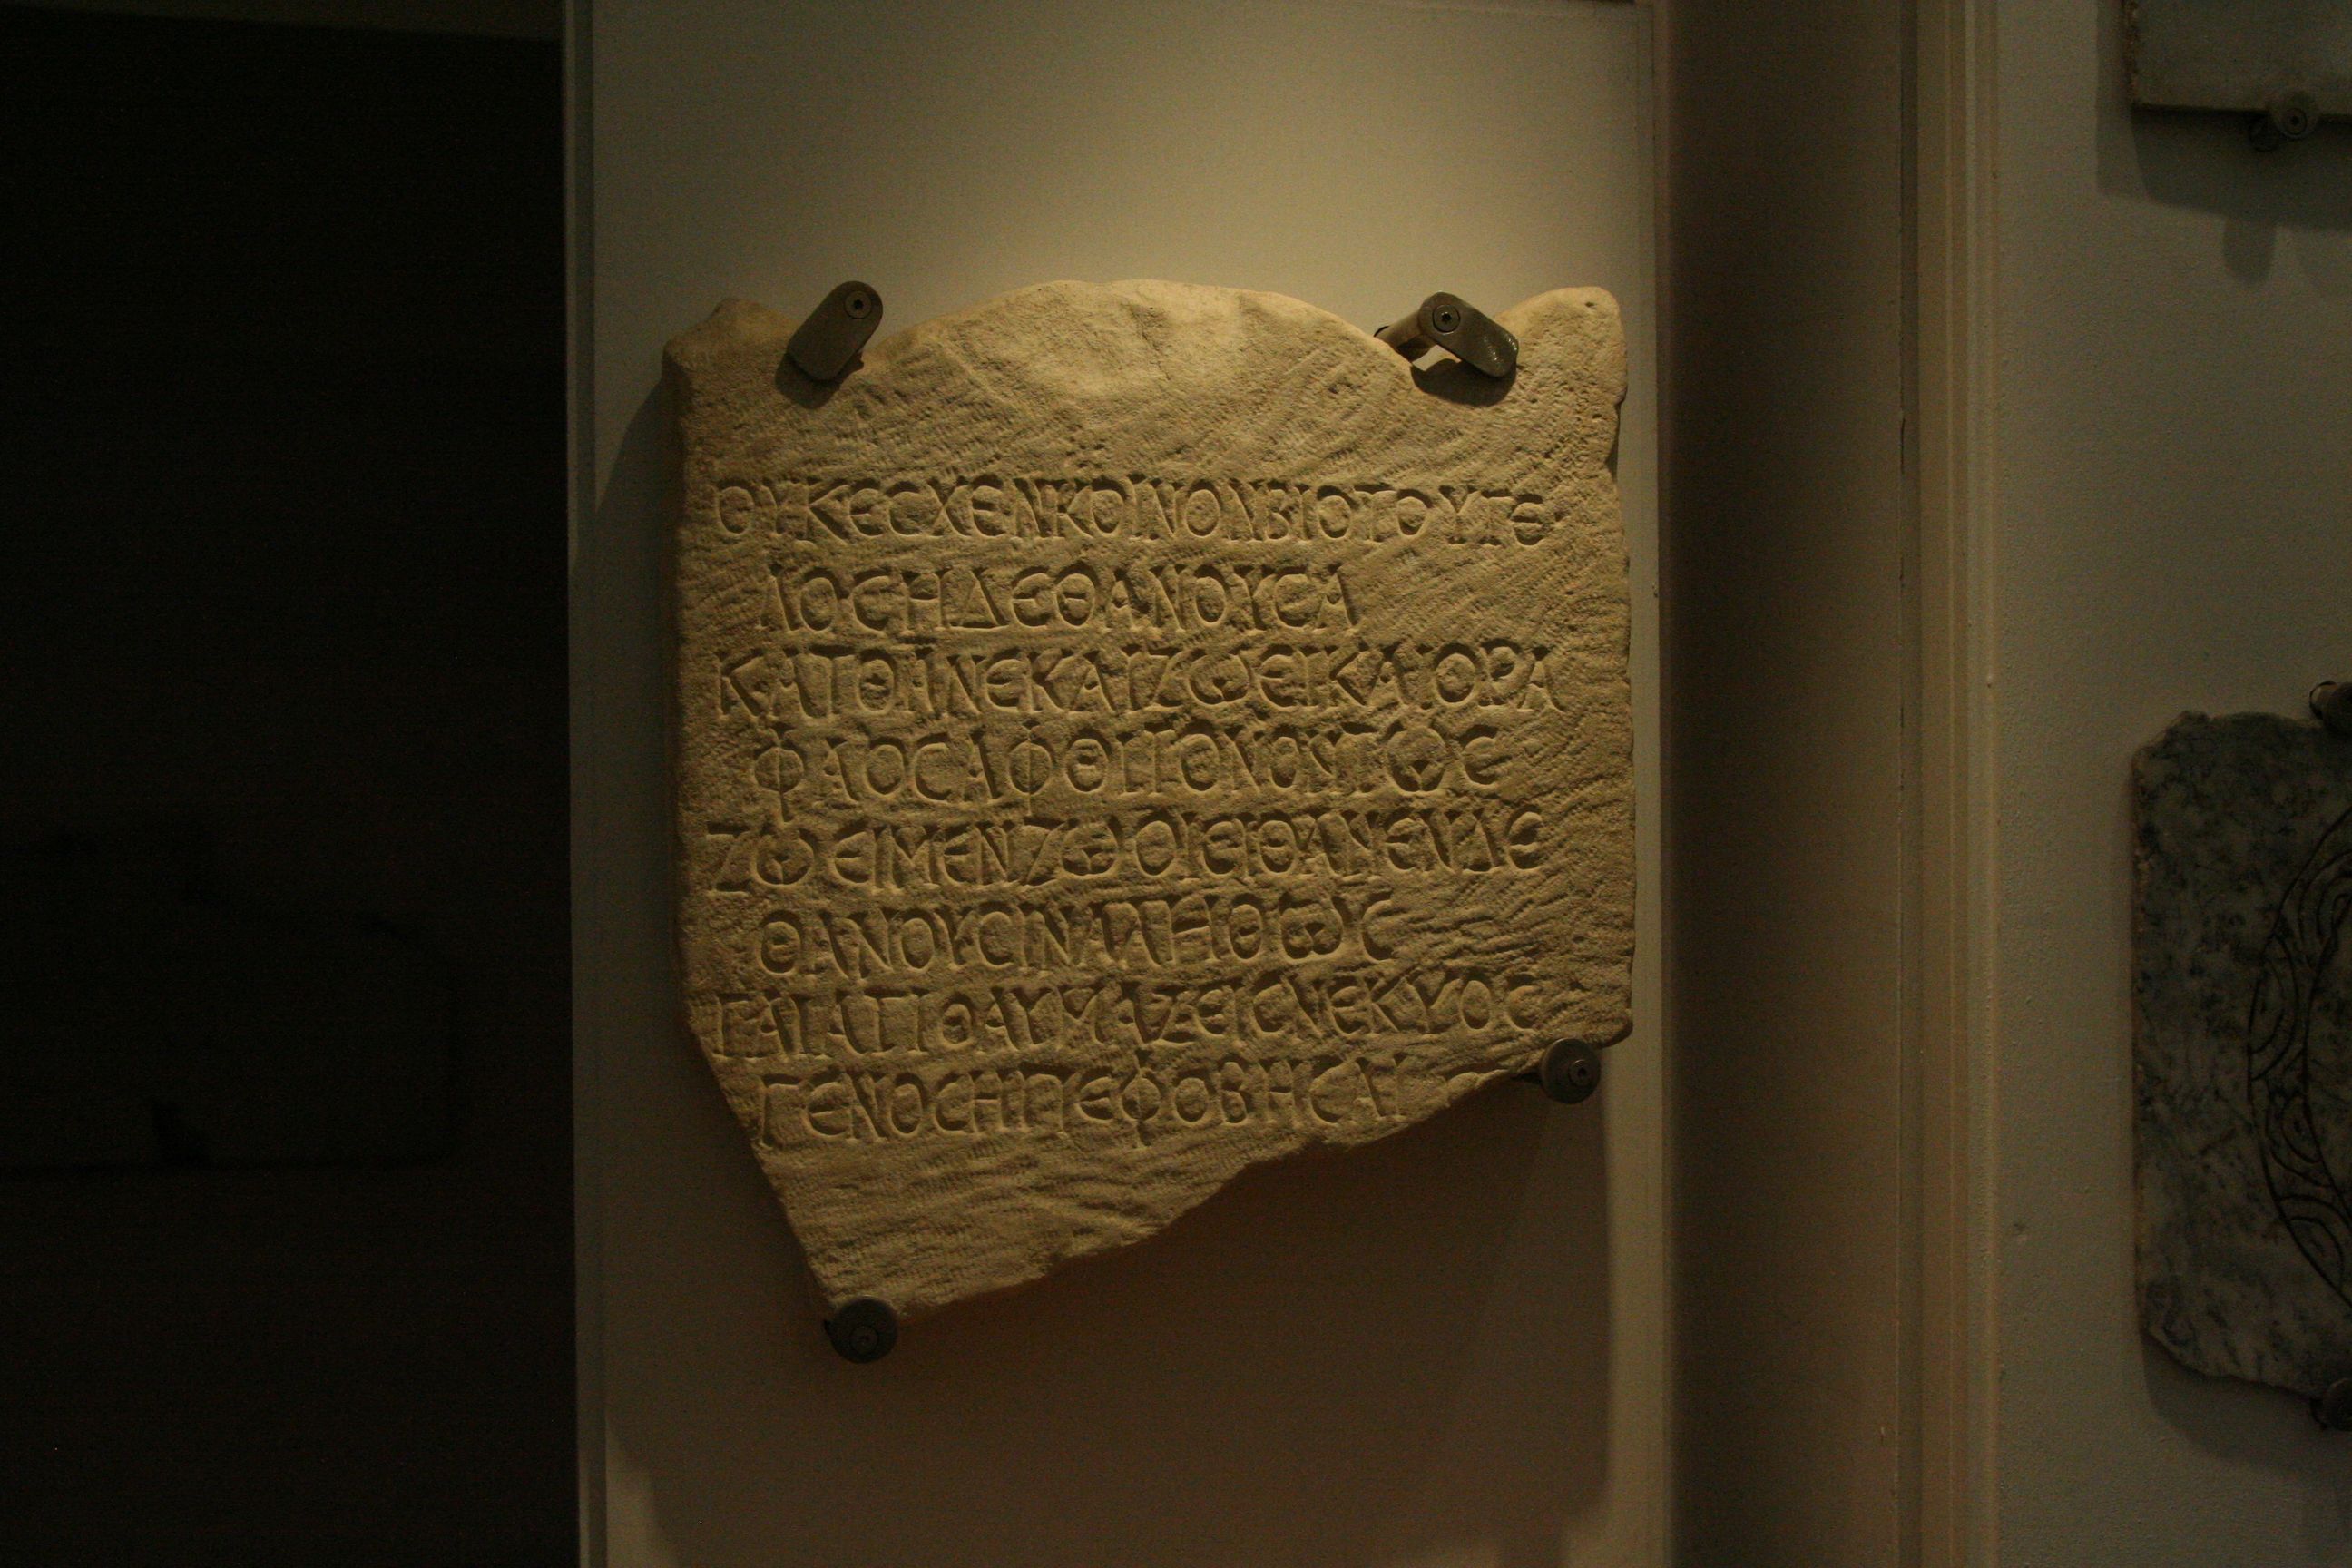 ΟΥΚΕϹΧΕΝΚΟΙΝΟΝΒΙΟΤΟΥΤΕ
ΛΟϹΗΔΕΘΑΝΟΥϹΑ
ΚΑΤΘΑΝΕΚΑΙΖΩΕΙΚΑΙΟΡΑ
ΦΑΟϹΑΦΘΙΤΟΝΟΝΤΩϹ
ΖΩΕΙΜΕΝΖΩΟΙϹΙΘΑΝΕΝΔΕ
ΘΑΝΟΥϹΙΝΑΛΗΘΩϹ
ΓΑΙΑΤΙΘΑΥΜΑΖΕΙϹΝΕΚΥΟϹ
ΓΕΝΟϹΗΠΕΦΟΒΗϹΑΙ